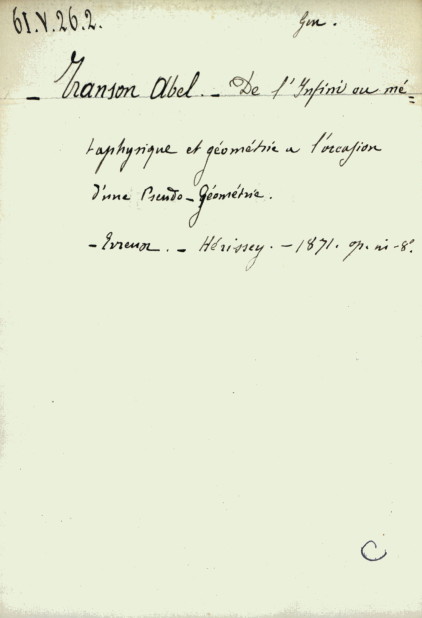 61.V.26.2. Gen.
- Transon Abel. - De l'Infini ou mé=
taphysique et géométrie a l'occasion
d'une Pseudo-Géométrie.
- Evreux. - Hérissey. - 1871. op. in-8°.
C